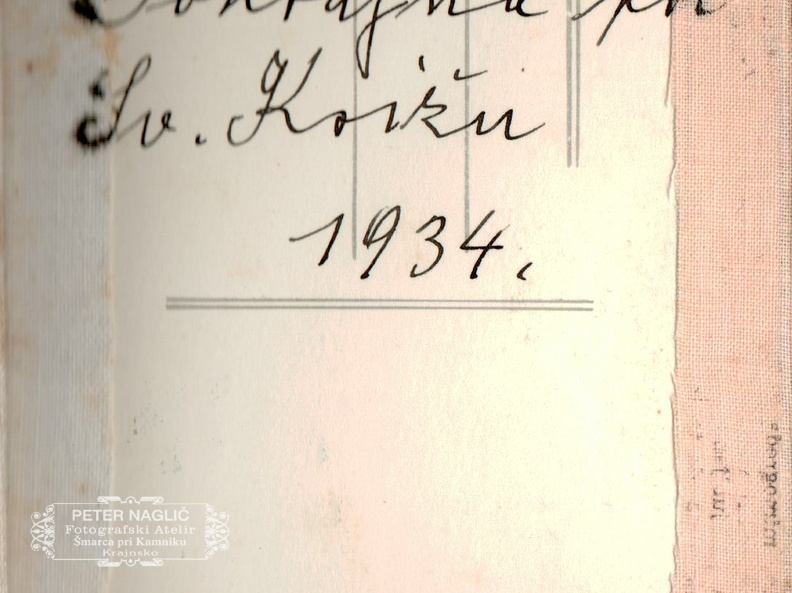 pri
Sv. Križu
1934.
PETER NAGLIČ
Fotografski Atelir
Šmarca pri Kamniku
Krajnsko